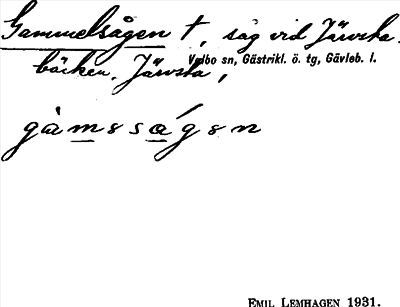 Gammelsågen †, såg vid Järvsta
Valbo sn, Gästrikl. ö. tg, Gävleb. l.
bäcken, Järvsta,
gàmssågen
EMIL LEMHAGEN 1931.